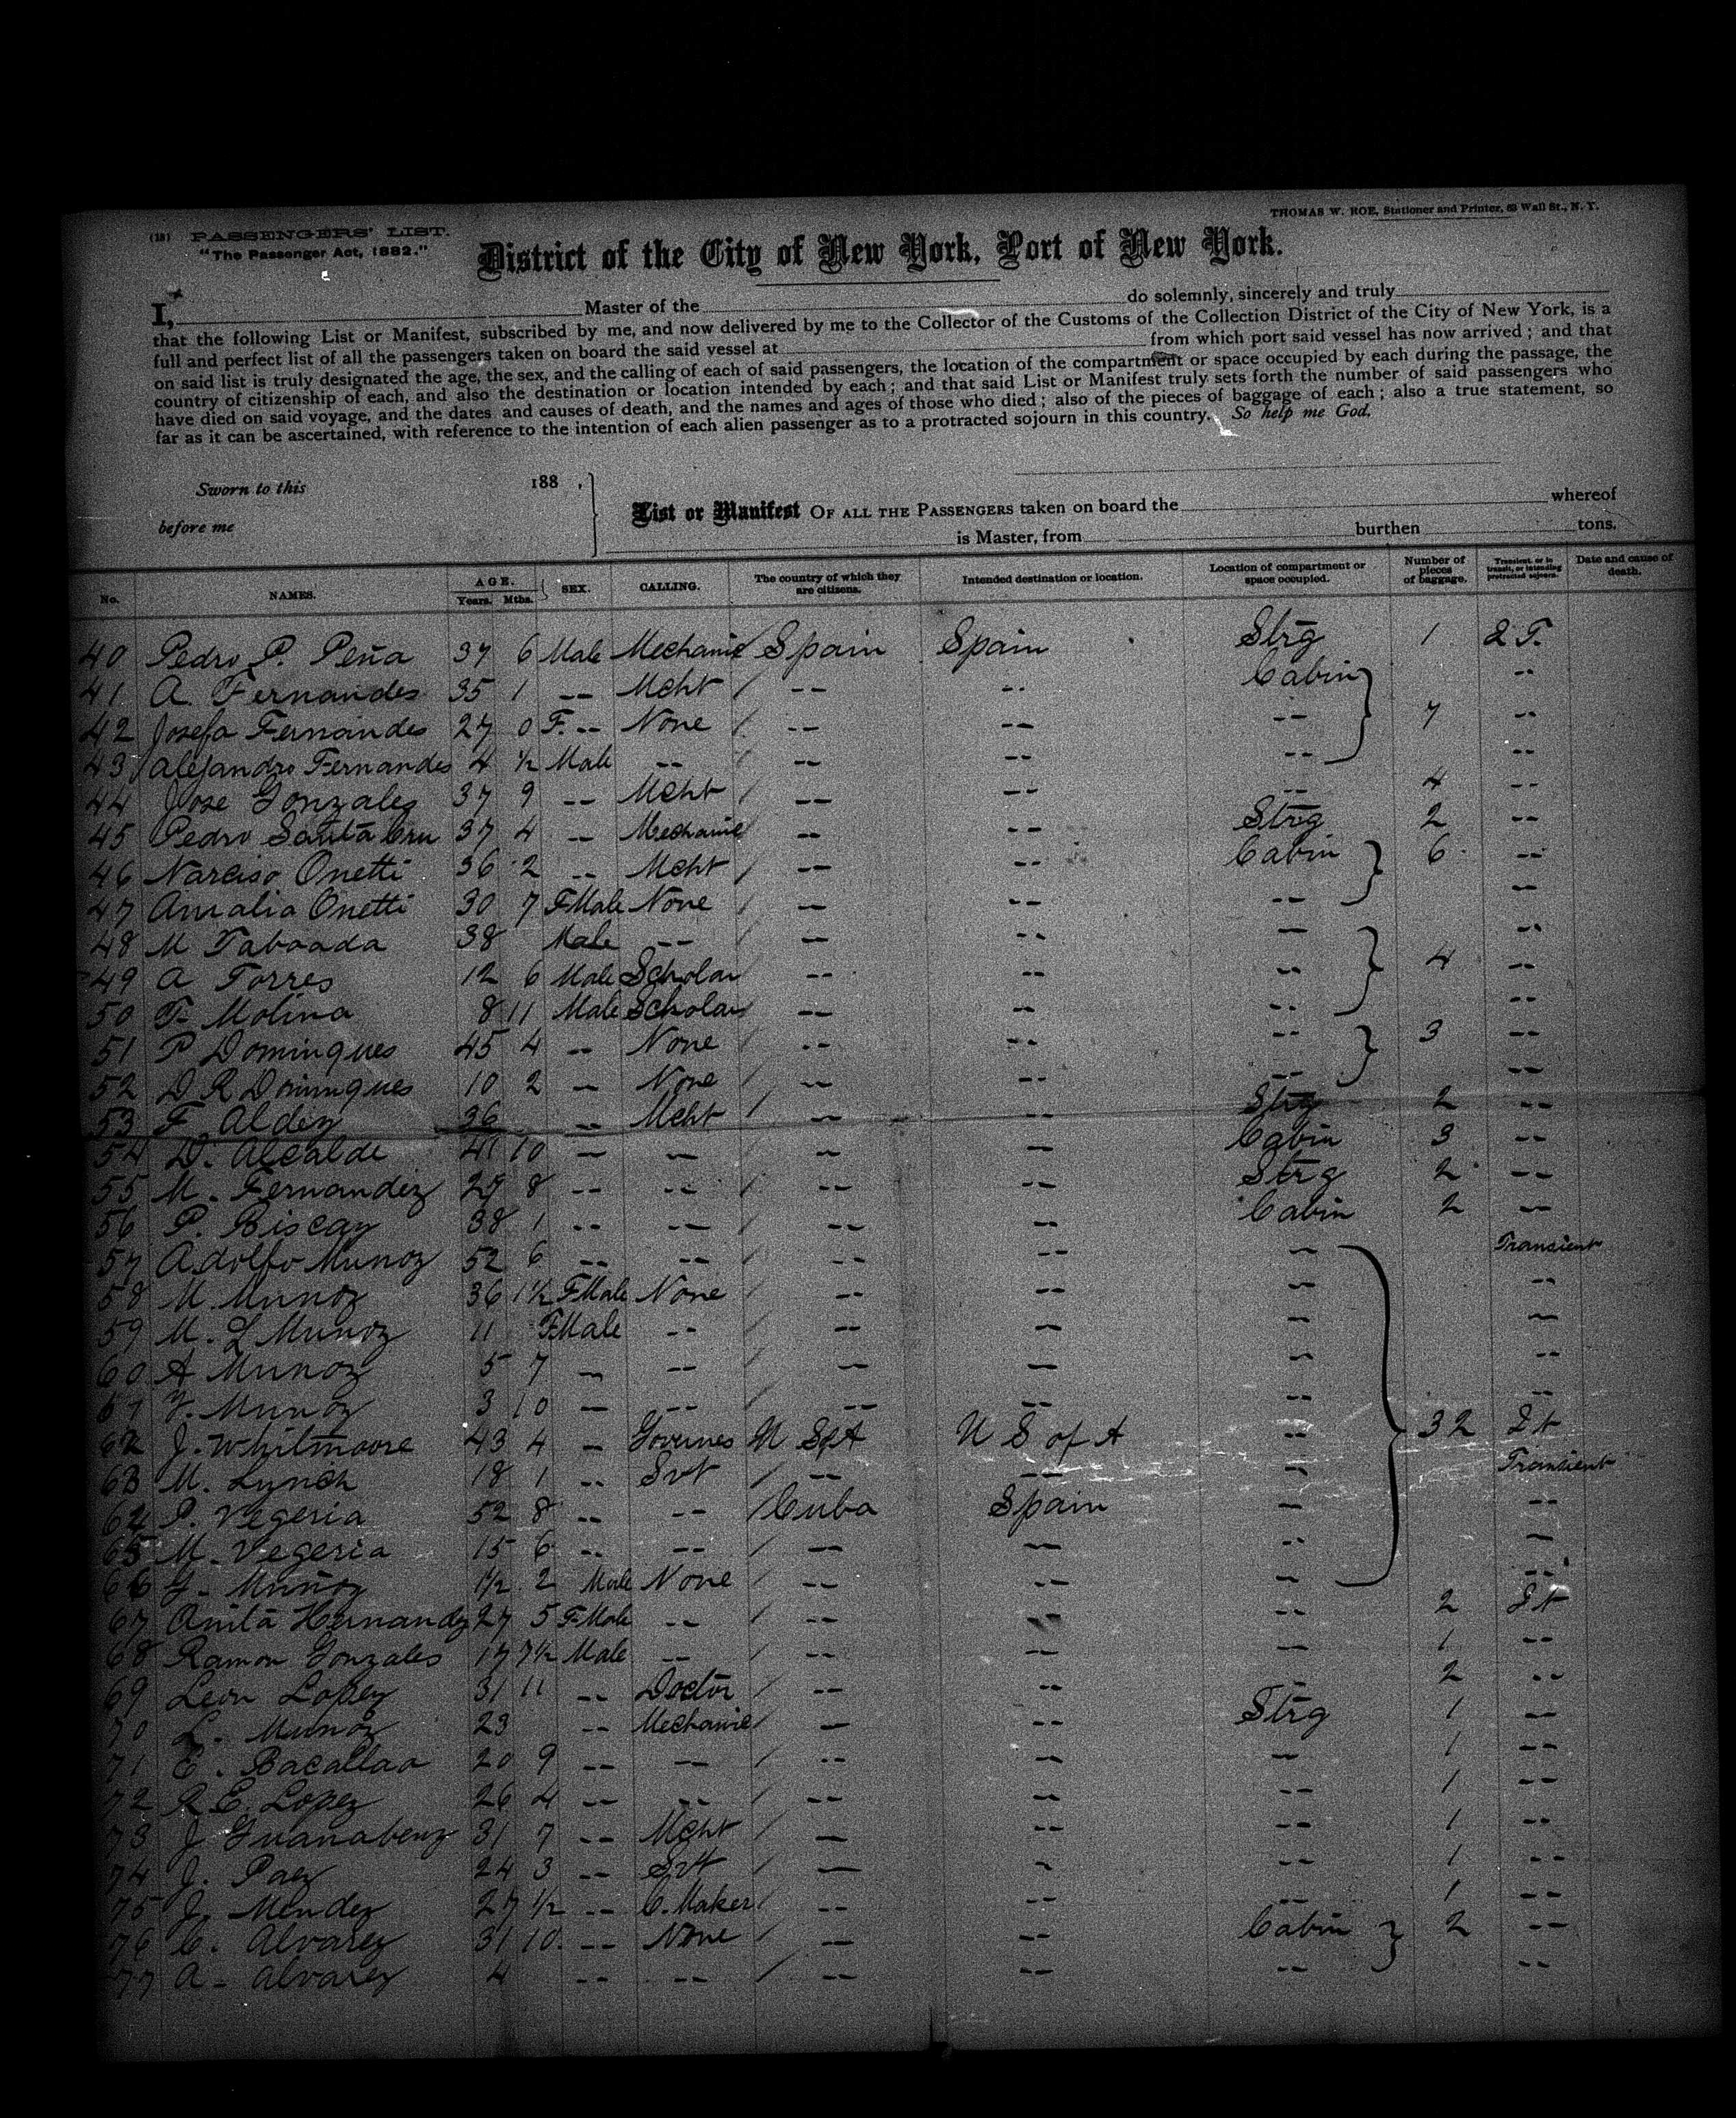 THOMAS W. ROE, Stationer and Printer, 63 Wall St., N. Y.
(18) PASSENGERS' LIST.
"The Passenger Act, 1882."
District of the City of New York, Port of New York.
I, Master of the do solemnly, sincerely and truly
that the following List or Manifest, subscribed by me, and now delivered by me to the Collector of the Customs of the Collection District of the City of New York, is a
full and perfect list of all the passengers taken on board the said vessel at from which port said vessel has now arrived; and that
on said list is truly designated the age, the sex, and the calling of each of said passengers, the location of the compartment or space occupied by each during the passage, the
country of citizenship of each, and also the destination or location intended by each; and that said List or Manifest truly sets forth the number of said passengers who
have died on said voyage, and the dates and causes of death, and the names and ages of those who died; also of the pieces of baggage of each; also a true statement, so
far as it can be ascertained, with reference to the intention of each alien passenger as to a protracted sojourn in this country. So help me God,
Sworn to this 188 .
before me
List or Manifest OF ALL THE PASSENGERS taken on board the whereof
is Master, from burthen tons.
No. NAMES. AGE. Years. Mths. SEX. CALLING. The country of which they are citizens. Intended destination or location. Location of compartment or space occupied. Number of pieces of baggage. Transient, or in transit, or intending protracted sojourn. Date and cause of death.
40 Pedro P. Peña 37 6 Male Mechanic / Spain Spain Strg 1 2 T.
41 A. Fernandes 35 1 -- Mcht / -- -- Cabin --
42 Josefa Fernandes 27 0 F. -- None / -- -- -- 7 --
43 Alejandro Fernandes 4 ½ Male -- / -- -- -- --
44 Jose Gonzales 37 9 -- Mcht / -- -- -- 4 --
45 Pedro Santa Cru 37 4 -- Mechanic -- -- Strg 2 --
46 Narciso Onetti 36 2 -- Mcht / -- -- Cabin 6 --
47 Amalia Onetti 30 7 FMale None / -- -- -- --
48 M Taboada 38 Male -- / -- -- -- --
49 A Torres 12 6 Male Scholar -- -- -- 4 --
50 F. Molina 8 11 Male Scholar -- -- -- --
51 P Domingues 45 4 -- None / -- -- -- 3 --
52 D R Domingues 10 2 -- None / -- -- -- --
53 F Aldez 36 -- Mcht / -- -- Strg 2 --
54 D. Alcalde 41 10 -- -- -- -- Cabin 3 --
55 M. Fernandez 27 8 -- -- / -- -- Strg 2 --
56 P. Biscay 38 1 -- -- / -- -- Cabin 2 --
57 Adolfo Munoz 52 6 -- -- / -- -- -- Transient
58 M. Munoz 36 1½ FMale None -- -- -- --
59 M. L Munoz 11 FMale -- / -- -- -- --
60 A Munoz 5 7 -- -- / -- -- -- --
61 Munoz 3 10 -- -- / -- -- -- --
62 J. Whitmoore 43 4 -- Governes U S of A U S of A -- 32 I t
63 M. Lynch 18 1 -- Svt / -- -- -- Transient
64 P. Vegeria 52 8 -- -- / Cuba Spain -- --
65 M. Vegeria 15 6 -- -- / -- -- -- --
66 Muñoz 1½ 2 Male None / -- -- -- --
67 Anita Hernandz 27 5 F-Male -- / -- -- -- 2 I t
68 Ramon Gonzales 17 7½ Male -- / -- -- -- 1 --
69 Leon Lopez 31 11 -- Doctor / -- -- -- 2 --
70 L. Munoz 23 -- Mechanic / -- -- Strg 1 --
71 E. Bacallao 20 9 -- -- / -- -- -- 1 --
72 R E. Lopez 26 4 -- -- / -- -- -- 1 --
73 J Guanabenz 31 7 -- Mcht / -- -- -- 1 --
74 J. Paez 24 3 -- Svt / -- -- -- 1 --
75 J. Mendez 27 ½ -- C. Maker / -- -- -- 1 --
76 C. Alvarez 31 10 -- None / -- -- Cabin 2 --
77 A- Alvarez 4 -- -- / -- -- -- --